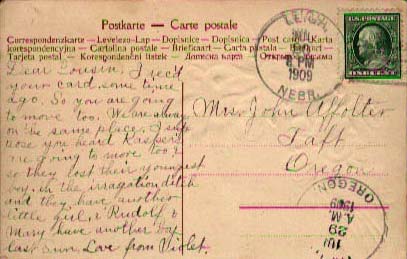 Postkarte — Carte postale
Correspondenzkarte — Levelezo-Lap — Dopisnice — Dopisnica — Post card — Karta
korespondencyjna — Cartolina postale — Briefkaart — Carta postal — Brefkort
Tarjeta postal — Korespondentni listek —
LEIGH,
PM
1909
NEBR.
U.S. POSTAGE
ONE CENT
Dear Cousin, I rec'd
your card some time
ago. So you are going
to move too. We are always
on the same place. I sup
pose you heard Kaspers
are going to move too &
so they lost their youngest
boy in the irragation ditch
and they have another
little girl, & Rudolf &
Mary have another boy
last Sun. Love from Violet.
Mrs. John Affolter
Taft
Oregon
OREGON.
1909
A.M.
29